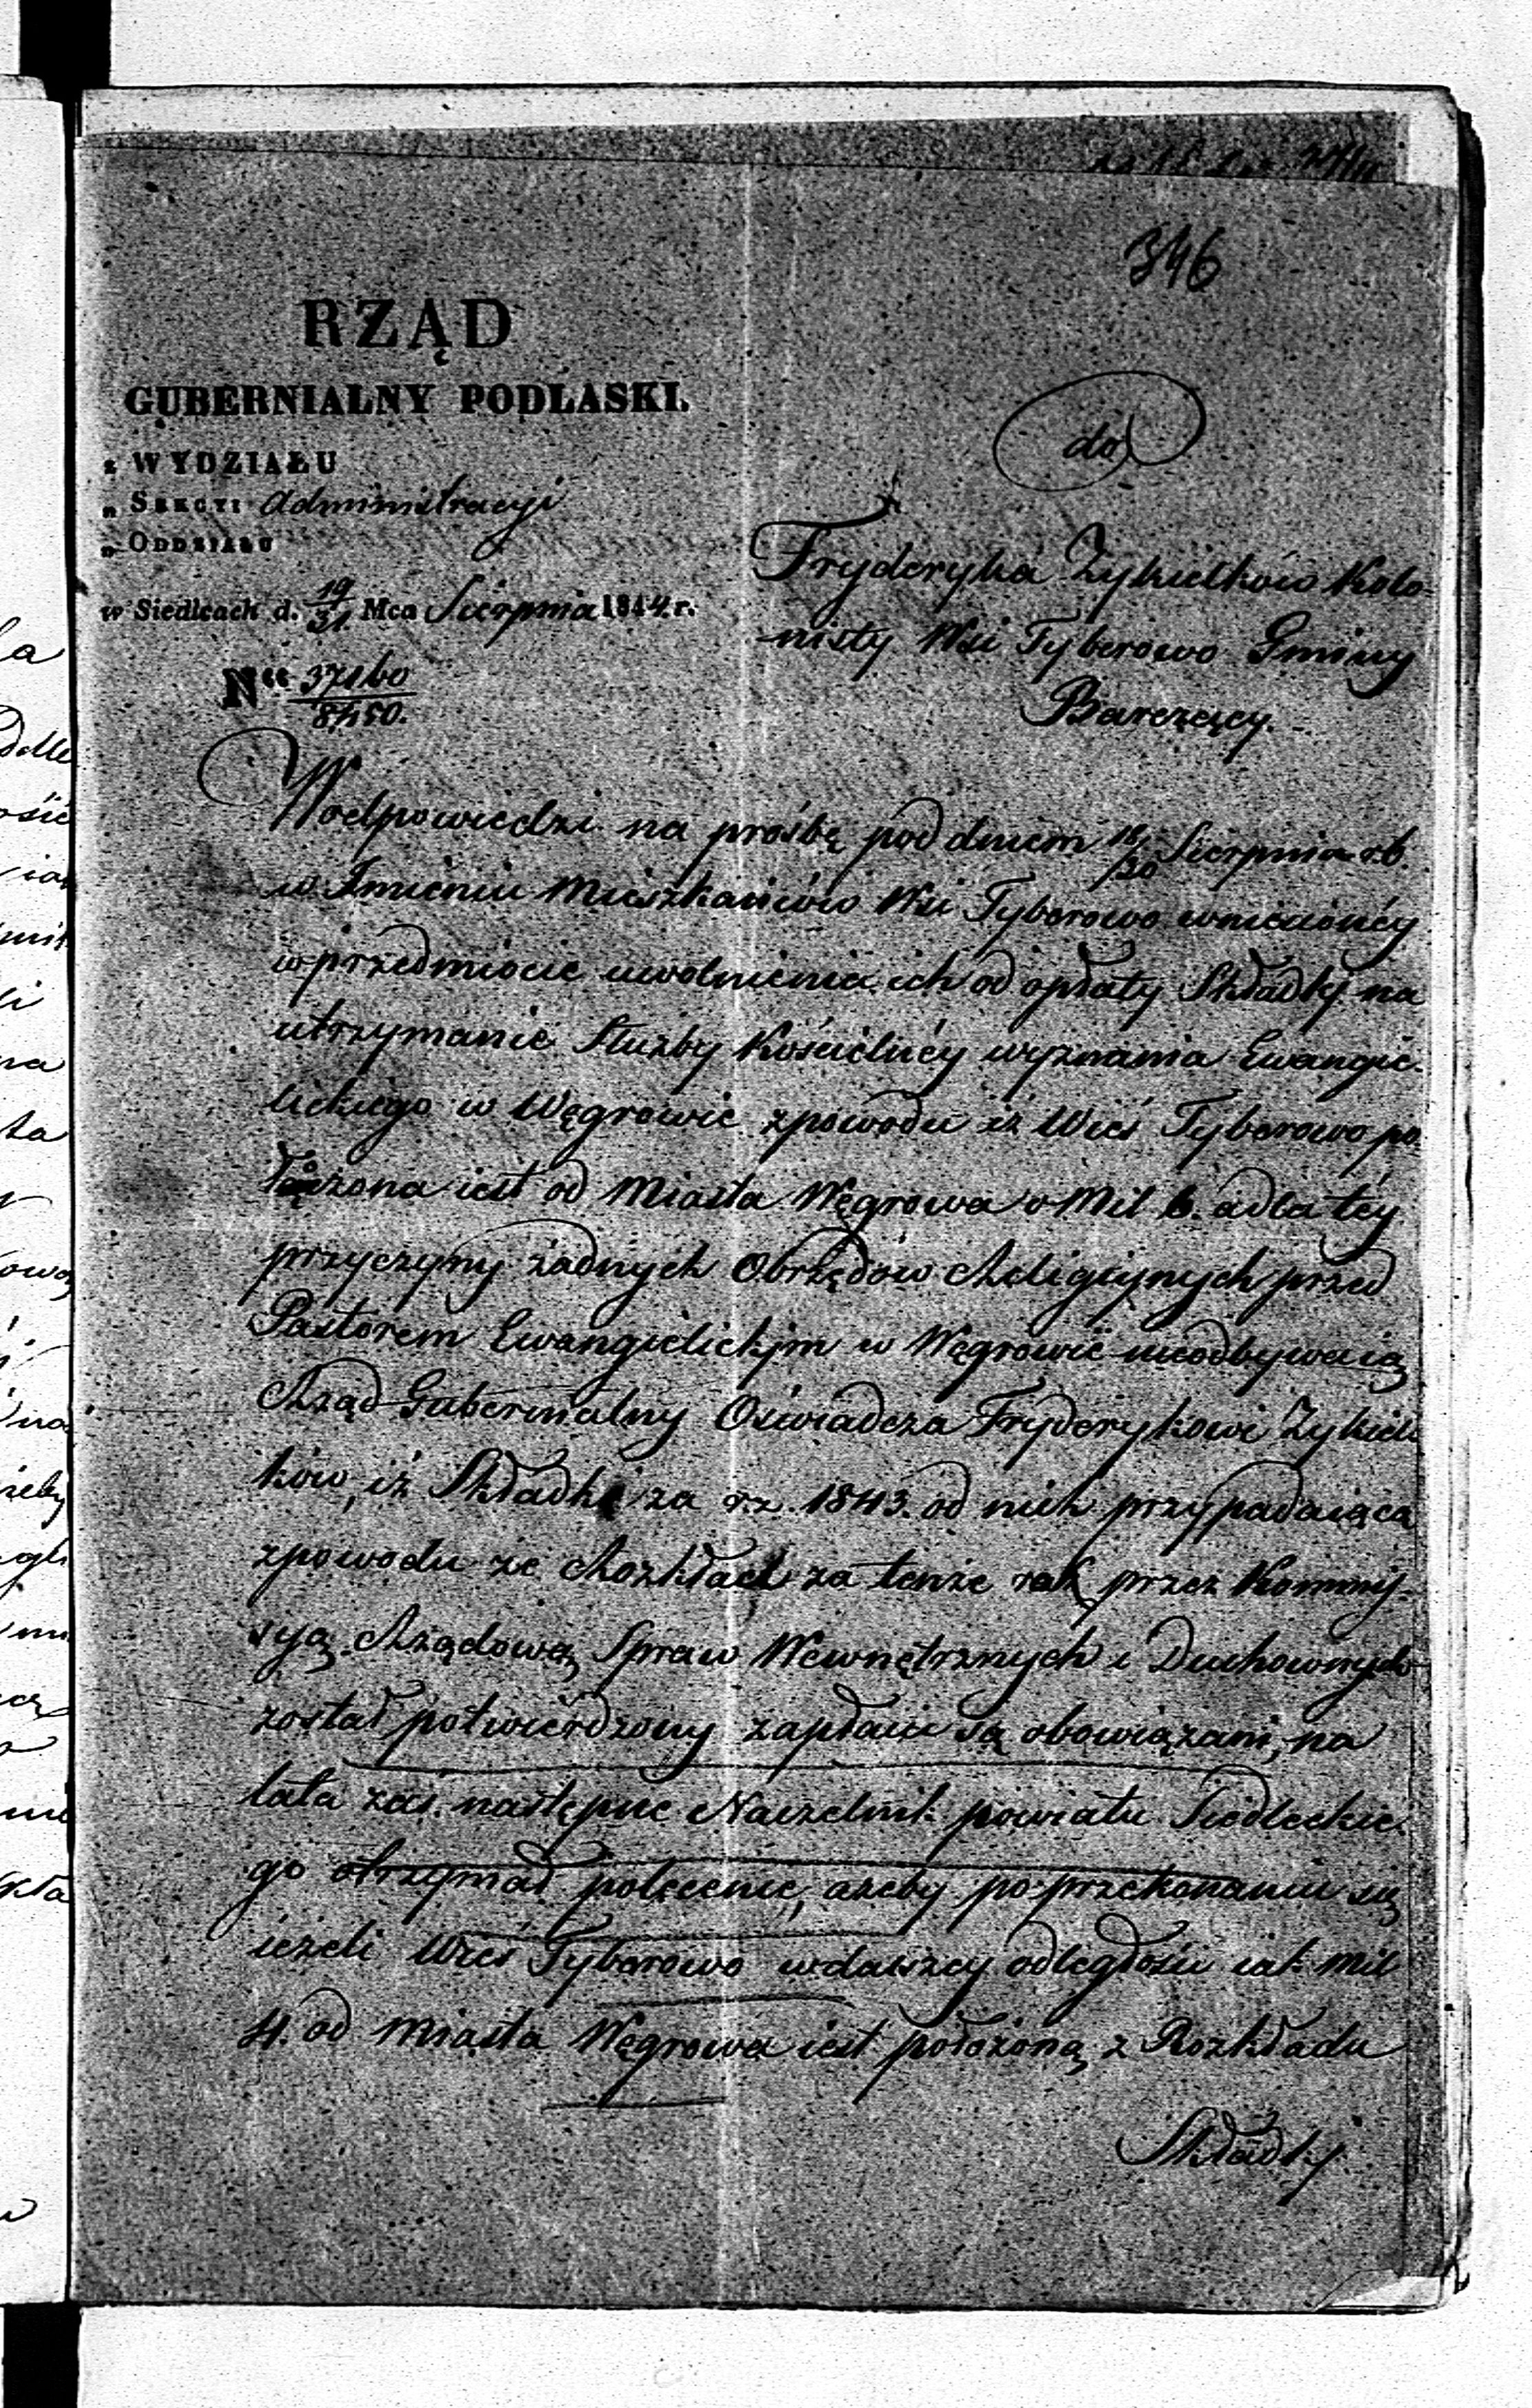 346
RZĄD
GUBERNIALNY PODLASKI.
z WYDZIAŁU
„ SEKCYI Administracyji
„ ODDZIAŁU
w Siedlcach d. 19/31. Mca Sierpnia 1844. r.
N° 37160/8450.
do
Fryderyka Zykielków Kolo-
nisty Wsi Tyborowo Gminy
Barczący.
W odpowiedzi na prośbę pod dniem 18/30 Sierpnia r.b.
w Imieniu Mieszkańców Wsi Tyborowo wniesionéy
w przedmiocie uwolnienia ich od opłaty Składky na
utrzymanie Służby Kościelnéy wyznania Ewangie-
lickiego w Węgrowie zpowodu iż Wieś Tyborowo po-
łożona iest od Miasta Węgrowa o Mil 6. a dla téy
przyczyny żadnych Obrzędów Religijnych przed
Pastorem Ewangielickjm w Węgrowie nieodbywaią
Rząd Gubernialny Oświadcza Fryderykowi Zykiel-
ków, iż Składki za r.z. 1843. od nich przypadaiąca
zpowodu że Rozkład za tenże rok przez Kommis-
syą Rządową Spraw Wewnętrznych i Duchownych
został potwierdzony zapłacić są obowiązani, na
lata zaś następne Naczelnik powiatu Siedleckie-
go otrzymał polecenie, ażeby po przekonaniu się
ieżeli Wieś Tyborowo w dalszey odległości iak mil
4. od Miasta Węgrowa iest położoną z Rozkładu
Składky